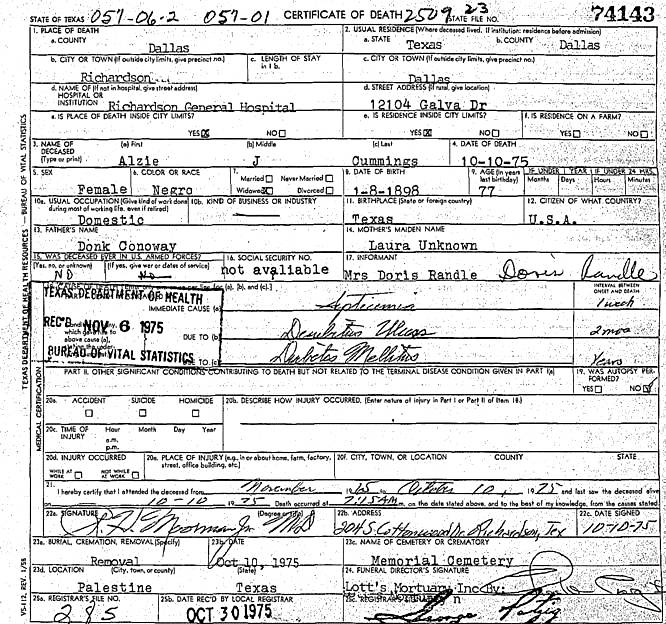 STATE OF TEXAS 057-06-2 057-01 CERTIFICATE OF DEATH 2509 23 STATE FILE NO. 74143
1. PLACE OF DEATH 2. USUAL RESIDENCE (Where deceased lived. If institution: residence before admission)
a. COUNTY Dallas a. STATE Texas b. COUNTY Dallas
b. CITY OR TOWN (If outside city limits, give precinct no.) c. LENGTH OF STAY in 1 b. c. CITY OR TOWN (If outside city limits, give precinct no.)
Richardson Dallas
d. NAME OF (If not in hospital, give street address) HOSPITAL OR INSTITUTION Richardson General Hospital d. STREET ADDRESS (If rural, give location) 12104 Galva Dr
e. IS PLACE OF DEATH INSIDE CITY LIMITS? YES NO e. IS RESIDENCE INSIDE CITY LIMITS? YES NO f. IS RESIDENCE ON A FARM? YES NO
3. NAME OF DECEASED (Type or print) (a) First (b) Middle (c) Last 4. DATE OF DEATH
Alzie J Cummings 10-10-75
5. SEX 6. COLOR OR RACE 7. Married Never Married Widowed Divorced 8. DATE OF BIRTH 9. AGE (In years last birthday) IF UNDER 1 YEAR IF UNDER 24 HRS. Months Days Hours Minutes
Female Negro 1-8-1898 77
10a. USUAL OCCUPATION (Give kind of work done during most of working life, even if retired) 10b. KIND OF BUSINESS OR INDUSTRY 11. BIRTHPLACE (State or foreign country) 12. CITIZEN OF WHAT COUNTRY?
Domestic Texas U.S.A.
13. FATHER'S NAME 14. MOTHER'S MAIDEN NAME
Donk Conoway Laura Unknown
15. WAS DECEASED EVER IN U.S. ARMED FORCES? 16. SOCIAL SECURITY NO. 17. INFORMANT
(Yes, no, or unknown) (If yes, give war or dates of service)
NO No not avaliable Mrs Doris Randle Doris Randle
INTERVAL BETWEEN ONSET AND DEATH
TEXAS DEPARTMENT OF HEALTH
IMMEDIATE CAUSE (a) Septicemia 1 week
REC'D NOV 6 1975
DUE TO (b) Decubitus Ulcers 2 mos
BUREAU OF VITAL STATISTICS
DUE TO (c) Diabetes Mellitus Years
PART II. OTHER SIGNIFICANT CONDITIONS CONTRIBUTING TO DEATH BUT NOT RELATED TO THE TERMINAL DISEASE CONDITION GIVEN IN PART I(a) 19. WAS AUTOPSY PERFORMED? YES NO
20a. ACCIDENT SUICIDE HOMICIDE 20b. DESCRIBE HOW INJURY OCCURRED. (Enter nature of injury in Part I or Part II of Item 18.)
20c. TIME OF INJURY Hour a.m. p.m. Month Day Year
20d. INJURY OCCURRED WHILE AT WORK NOT WHILE AT WORK 20e. PLACE OF INJURY (e.g., in or about home, farm, factory, street, office building, etc.) 20f. CITY, TOWN, OR LOCATION COUNTY STATE
21. I hereby certify that I attended the deceased from November 1965 to October 10, 1975 and last saw the deceased alive
on 10-10 1975 Death occurred at 2:15 AM. on the date stated above, and to the best of my knowledge, from the causes stated.
22a. SIGNATURE (Degree or title) MD 22b. ADDRESS 304 S. Cottonwood Dr. Richardson, Tex 22c. DATE SIGNED 10-10-75
23a. BURIAL, CREMATION, REMOVAL (Specify) 23b. DATE 23c. NAME OF CEMETERY OR CREMATORY
Removal Oct 10, 1975 Memorial Cemetery
23d. LOCATION (City, town, or county) (State) 24. FUNERAL DIRECTOR'S SIGNATURE
Palestine Texas Lott's Mortuary Inc By:
25a. REGISTRAR'S FILE NO. 25b. DATE REC'D BY LOCAL REGISTRAR 25c. REGISTRAR'S SIGNATURE
285 OCT 30 1975 George
TEXAS DEPARTMENT OF HEALTH RESOURCES — BUREAU OF VITAL STATISTICS
MEDICAL CERTIFICATION
VS-112, REV. 1/58